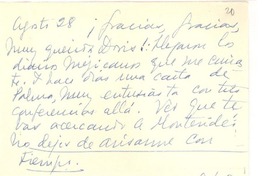 20
Agosto 28 ¡Gracias, gracias,
muy querida Doris!: Llegaron los
diarios Mejicanos que me envia
te. Y hace días una carta de
Palma, muy entusiasta con tus
conferencias allá. Veo que te
vas acercando a Montevideo.
No dejes de avisarme con
tiempo.